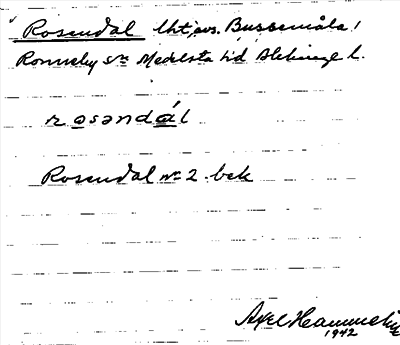 Rosendal lht, avs. Bussemåla,
Ronneby sn Medelsta hd Blekinge l.
rosəndál
Rosendal nr 2 bek
Axel Hammelin
1942